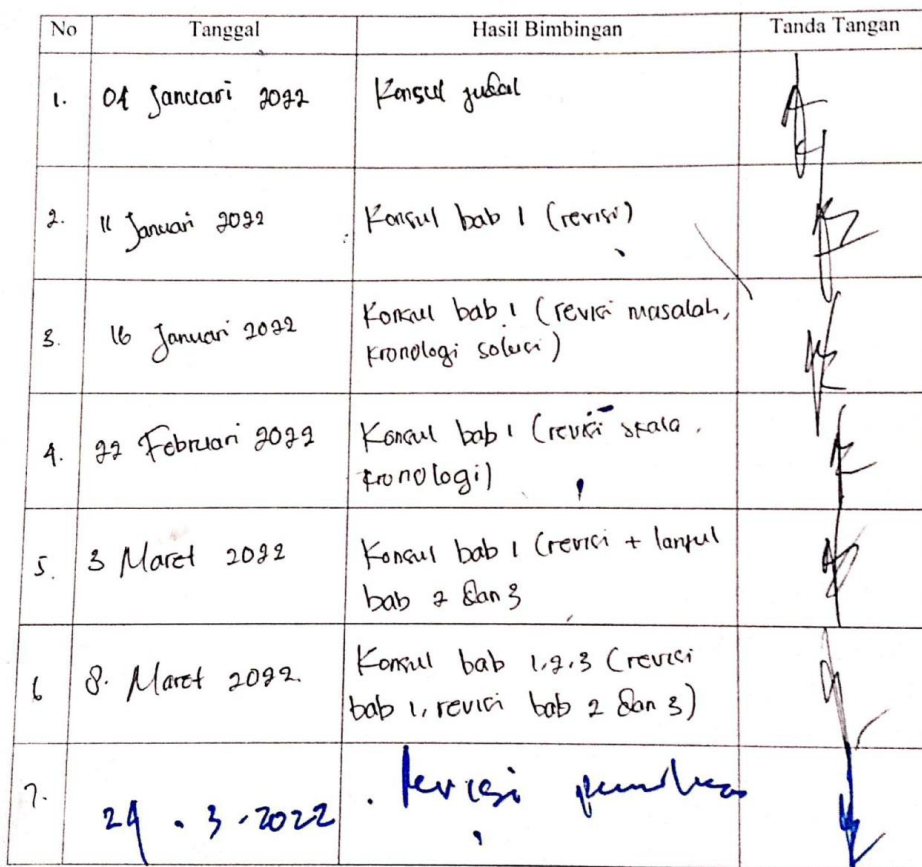 No Tanggal Hasil Bimbingan Tanda Tangan
1. 04 Januari 2022 Konsul judul
2. 11 Januari 2022 Konsul bab 1 (revisi)
3. 16 Januari 2022 Konsul bab 1 (revisi masalah,
kronologi solusi)
4. 22 Februari 2022 Konsul bab 1 (revisi skala,
kronologi)
5. 3 Maret 2022 Konsul bab 1 (revisi + lanjut
bab 2 dan 3
6 8. Maret 2022. Konsul bab 1,2,3 (revisi
bab 1, revisi bab 2 dan 3)
7. 24 . 3 . 2022 . revisi